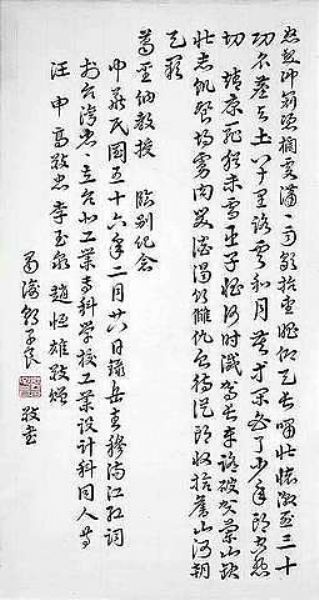 怒髮冲冠憑欄處瀟、雨歇抬望眼仰天長嘯壯懷激烈三十
功名塵與土八千里路雲和月莫等閒白了少年頭空悲
切 靖康恥猶未雪臣子恨何時滅駕長車踏破賀蘭山缺
壯志飢餐胡虜肉笑談渴飲讎仇血待從頭收拾舊山河朝
天闕
葛聖納教授 臨別紀念
中華民國五十六年二月廿八日錄岳武穆滿江紅詞
於台灣省、立台北工業專科學校工業設計科同人等
汪申 高敬忠 李玉泉 趙恒雄敬贈
子良 敬書